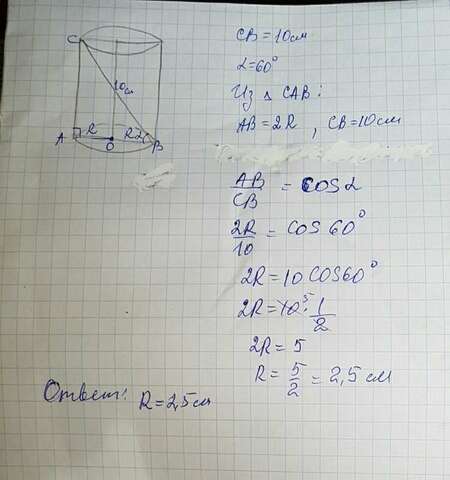 C
10 см
R
R α
A
O
B
CB = 10 см
α = 60°
Из Δ CAB:
AB = 2R , CB = 10 см
AB/CB = cos α
2R/10 = cos 60°
2R = 10 cos 60°
2R = 10 5 · 1/2
2R = 5
R = 5/2 = 2,5 см
Ответ: R = 2,5 см